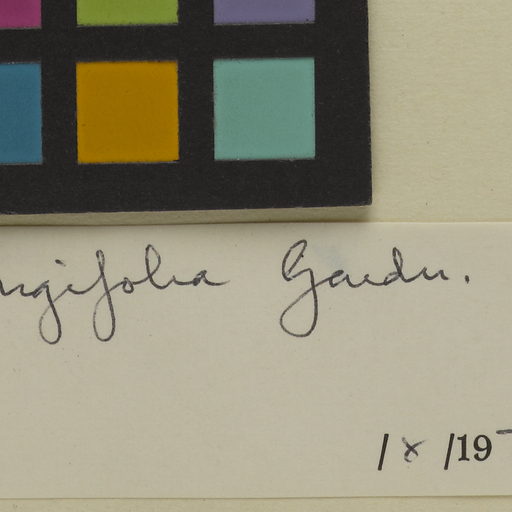 ngifolia Gardn.
/ x /19